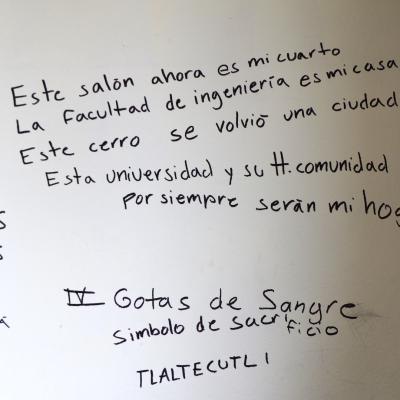 Este salón ahora es mi cuarto
La Facultad de ingeniería es mi casa
Este cerro se volvió una ciudad
Esta universidad y su H. comunidad
Por siempre serán mi hog
IV Gotas de Sangre
Simbolo de sacrificio
TLALTECUTLI